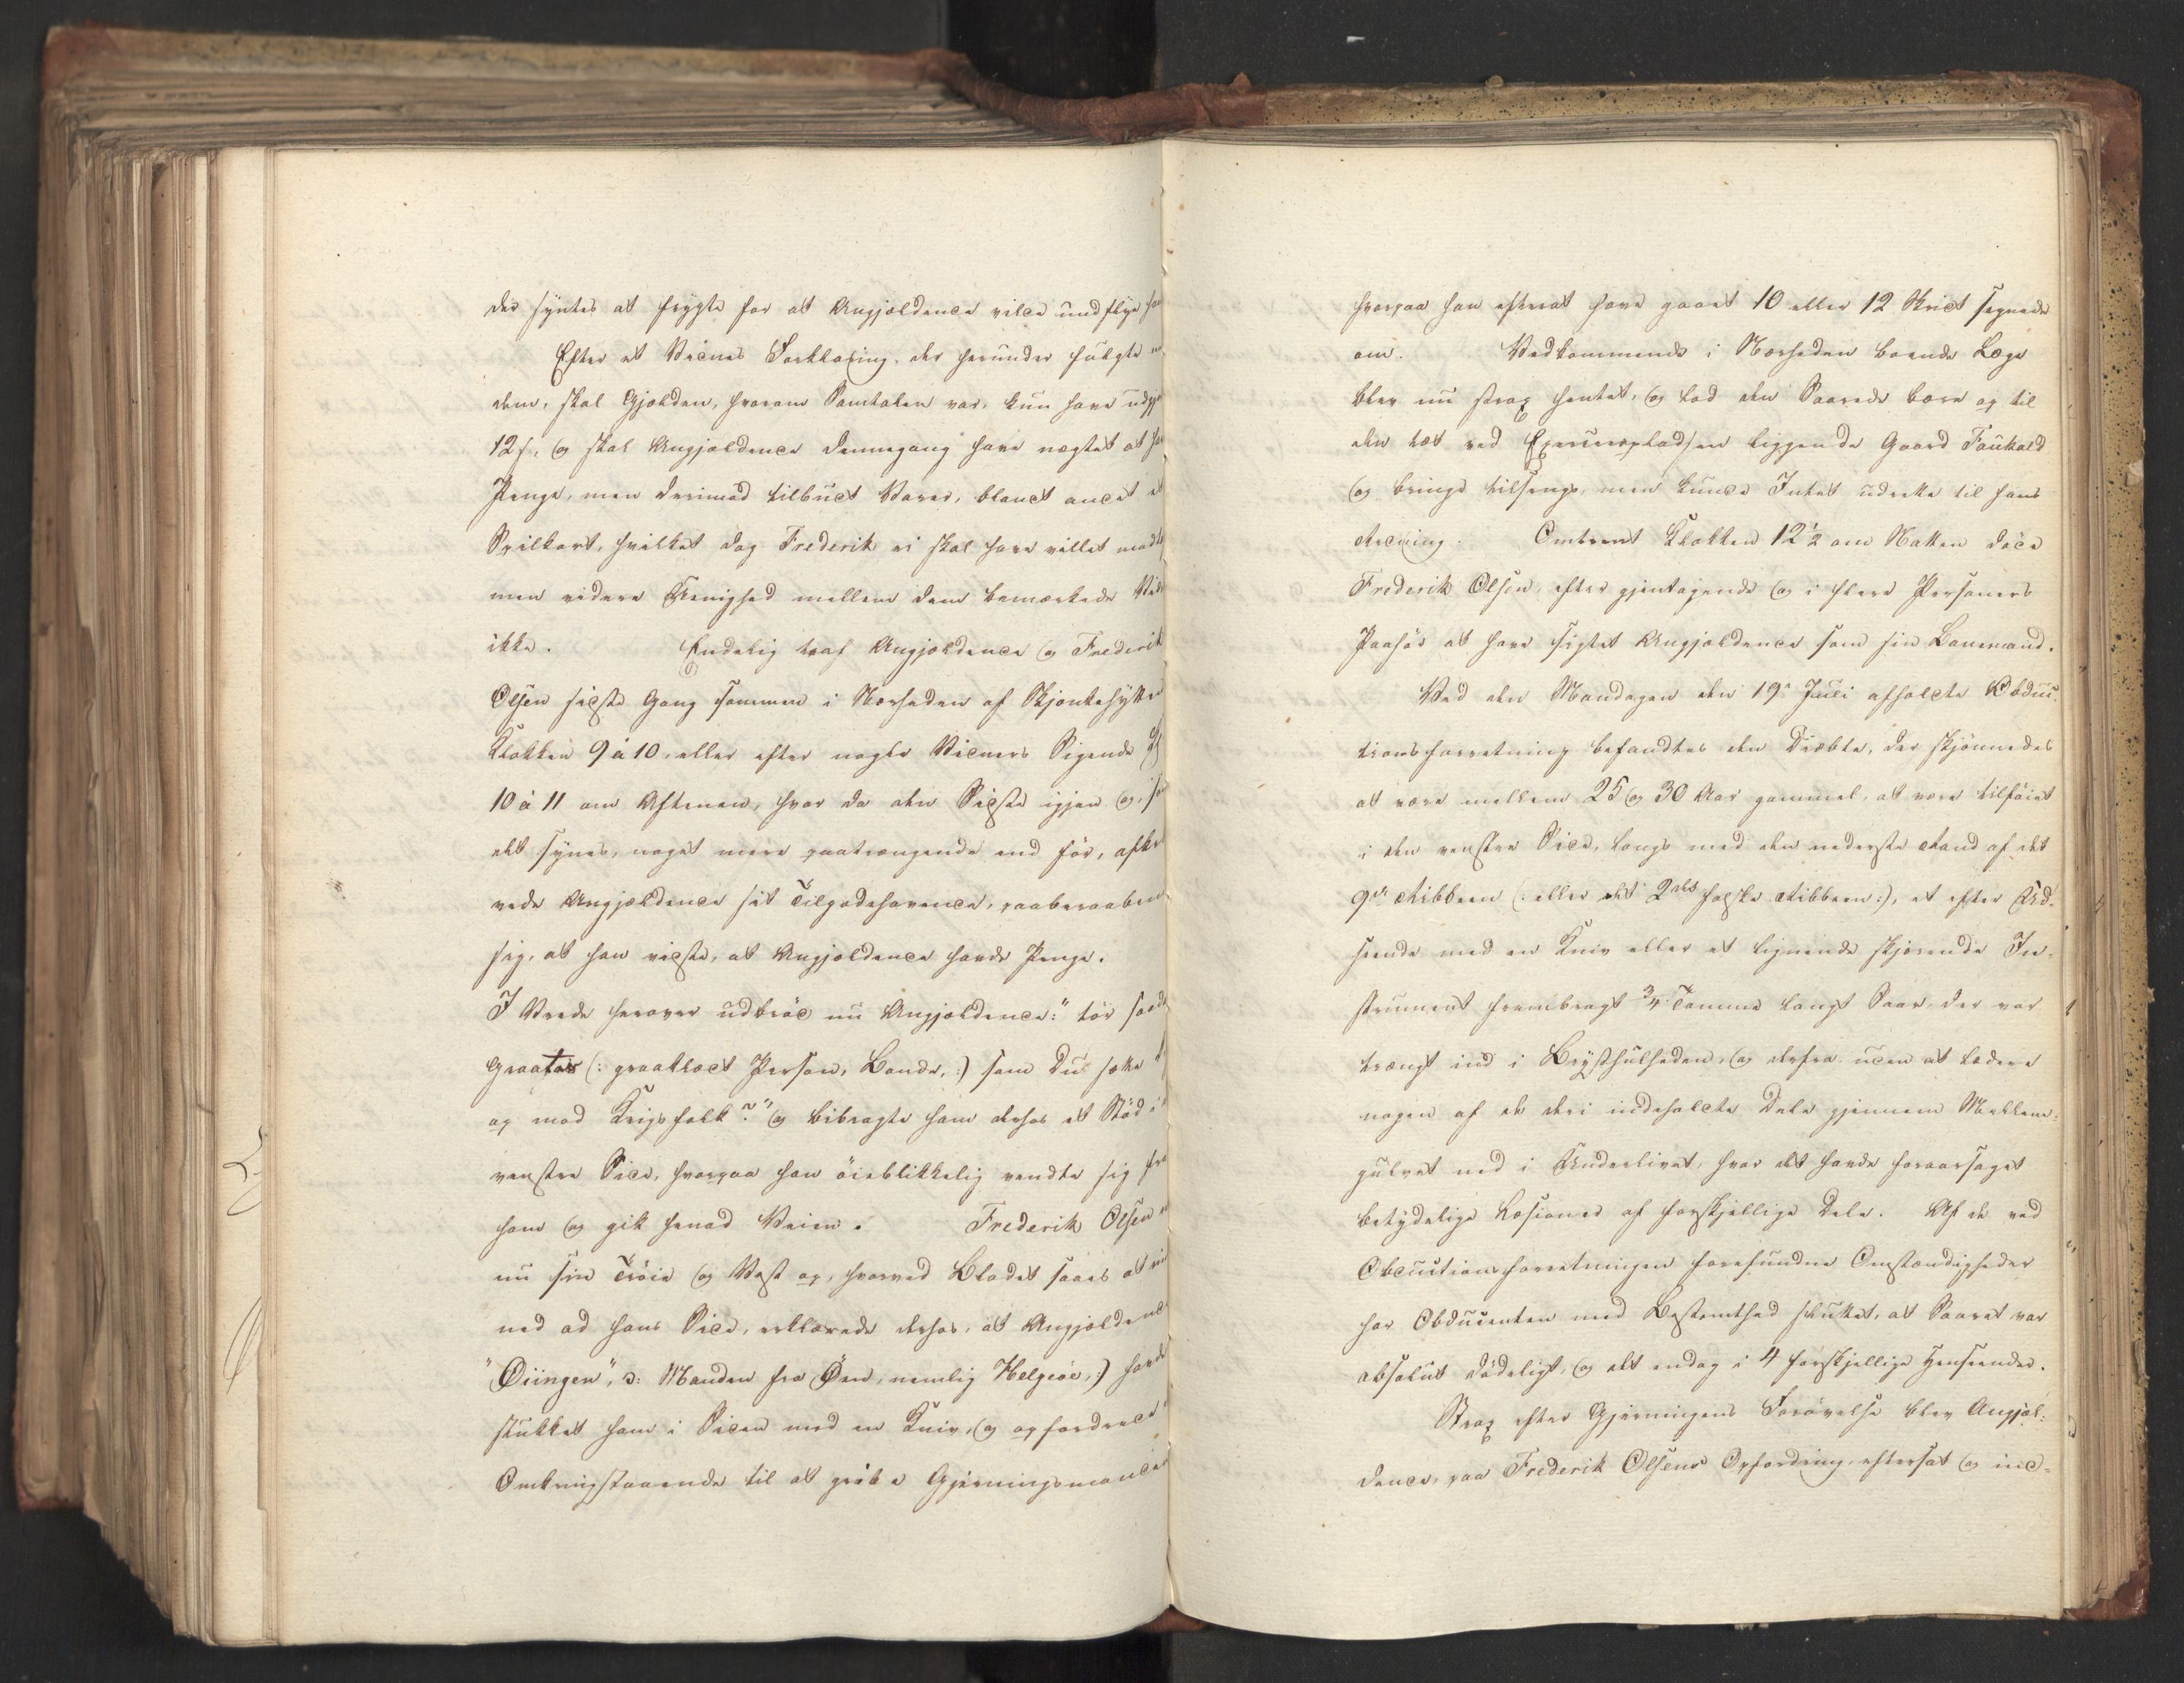 der syntes at frygte for at Angjældende vilde undflye ham
Efter et Vidnes Forklaring, der herunder fulgte
dem, skal Gjælden, hvorom Samtalen var, kun have udgj
12 s, og skal Angjældende dennegang have nægtet at ha
Penge, men derimod tilbudt Varer, blandt andet et
Spilkort, hvilket dog Frederik ei skal have villet modt
men videre Uenighed mellem dem bemærkede Vid
ikke. Endelig traf Angjældende og Frederik
Olsen sidste Gang sammen i Nærheden af Skjænkehytten
Klokken 9 à 10, eller efter nogle Vidners Sigende
10 à 11 om Aftenen, hvor da den Sidste igjen og, som
det synes, noget mere paatrængende end før, afkræ
vede Angjældende sit Tilgodehavende, paaberaabende
sig, at han vidste, at Angjældende havde Penge.
I Vrede herover udbrød nu Angjældende: "tør saad
Graata (: graaklædt Person, Bonde, :) som Du sætte
op mod Krigsfolk?" og bibragte ham derhos et Stød i
venstre Side, hvorpaa han øieblikkelig vendte sig fra
ham og gik henad Veien. Frederik Olsen
nu sin Trøie og Vest op, hvorved Blodet saaes at
ned ad hans Side, erklærede derhos, at Angjældende
"Øiingen", ɔ: Manden fra Øen, nemlig Helgeøe, :) havde
stukket ham i Siden med en Kniv, og opfordrede
Omkringstaaende til at gribe Gjerningsmanden
hvorpaa han efterat have gaaet 10 eller 12 Skridt segnede
om. Vedkommende i Nærheden boende Læge
blev nu strax hentet, og lod den Saarede bære op til
den tæt ved Exerceerpladsen liggende Gaard Faukald
og bringe tilsengs, men kunde Intet udrette til hans
Redning. Omtrent Klokken 12½ om Natten døde
Frederik Olsen, efter gjentagende og i flere Personers
Paahør at have sigtet Angjældende som sin Banemand.
Ved den Mandagen den 19de Juli afholdte Obduc-
tionsforretning befandtes den Dræbte, der skjønnedes
at være mellem 25 og 30 Aar gammel, at være tilføiet
i den venstre Side, langs med den nederste Rand af det
9de Ribbeen (: eller det 2det falske Ribbeen :), et efter Ud-
seende med en Kniv eller et lignende skjærende In-
strument frembragt ¾ Tomme langt Saar, der var
trængt ind i Brysthulheden, og derfra uden at lædere
nogen af de deri indeholdte Dele gjennem Mellem-
gulvet ned i Underlivet, hvor det havde foraarsaget
betydelige Læsioner af forskjellige Dele. Af de ved
Obductionsforretningen forefundne Omstændigheder
har Obducenten med Bestemthed sluttet, at Saaret var
absolut dødeligt, og det endog i 4 forskjellige Henseender.
Strax efter Gjerningens Forøvelse blev Angjæl-
dende, paa Frederik Olsens Opfordring, eftersat og ind-